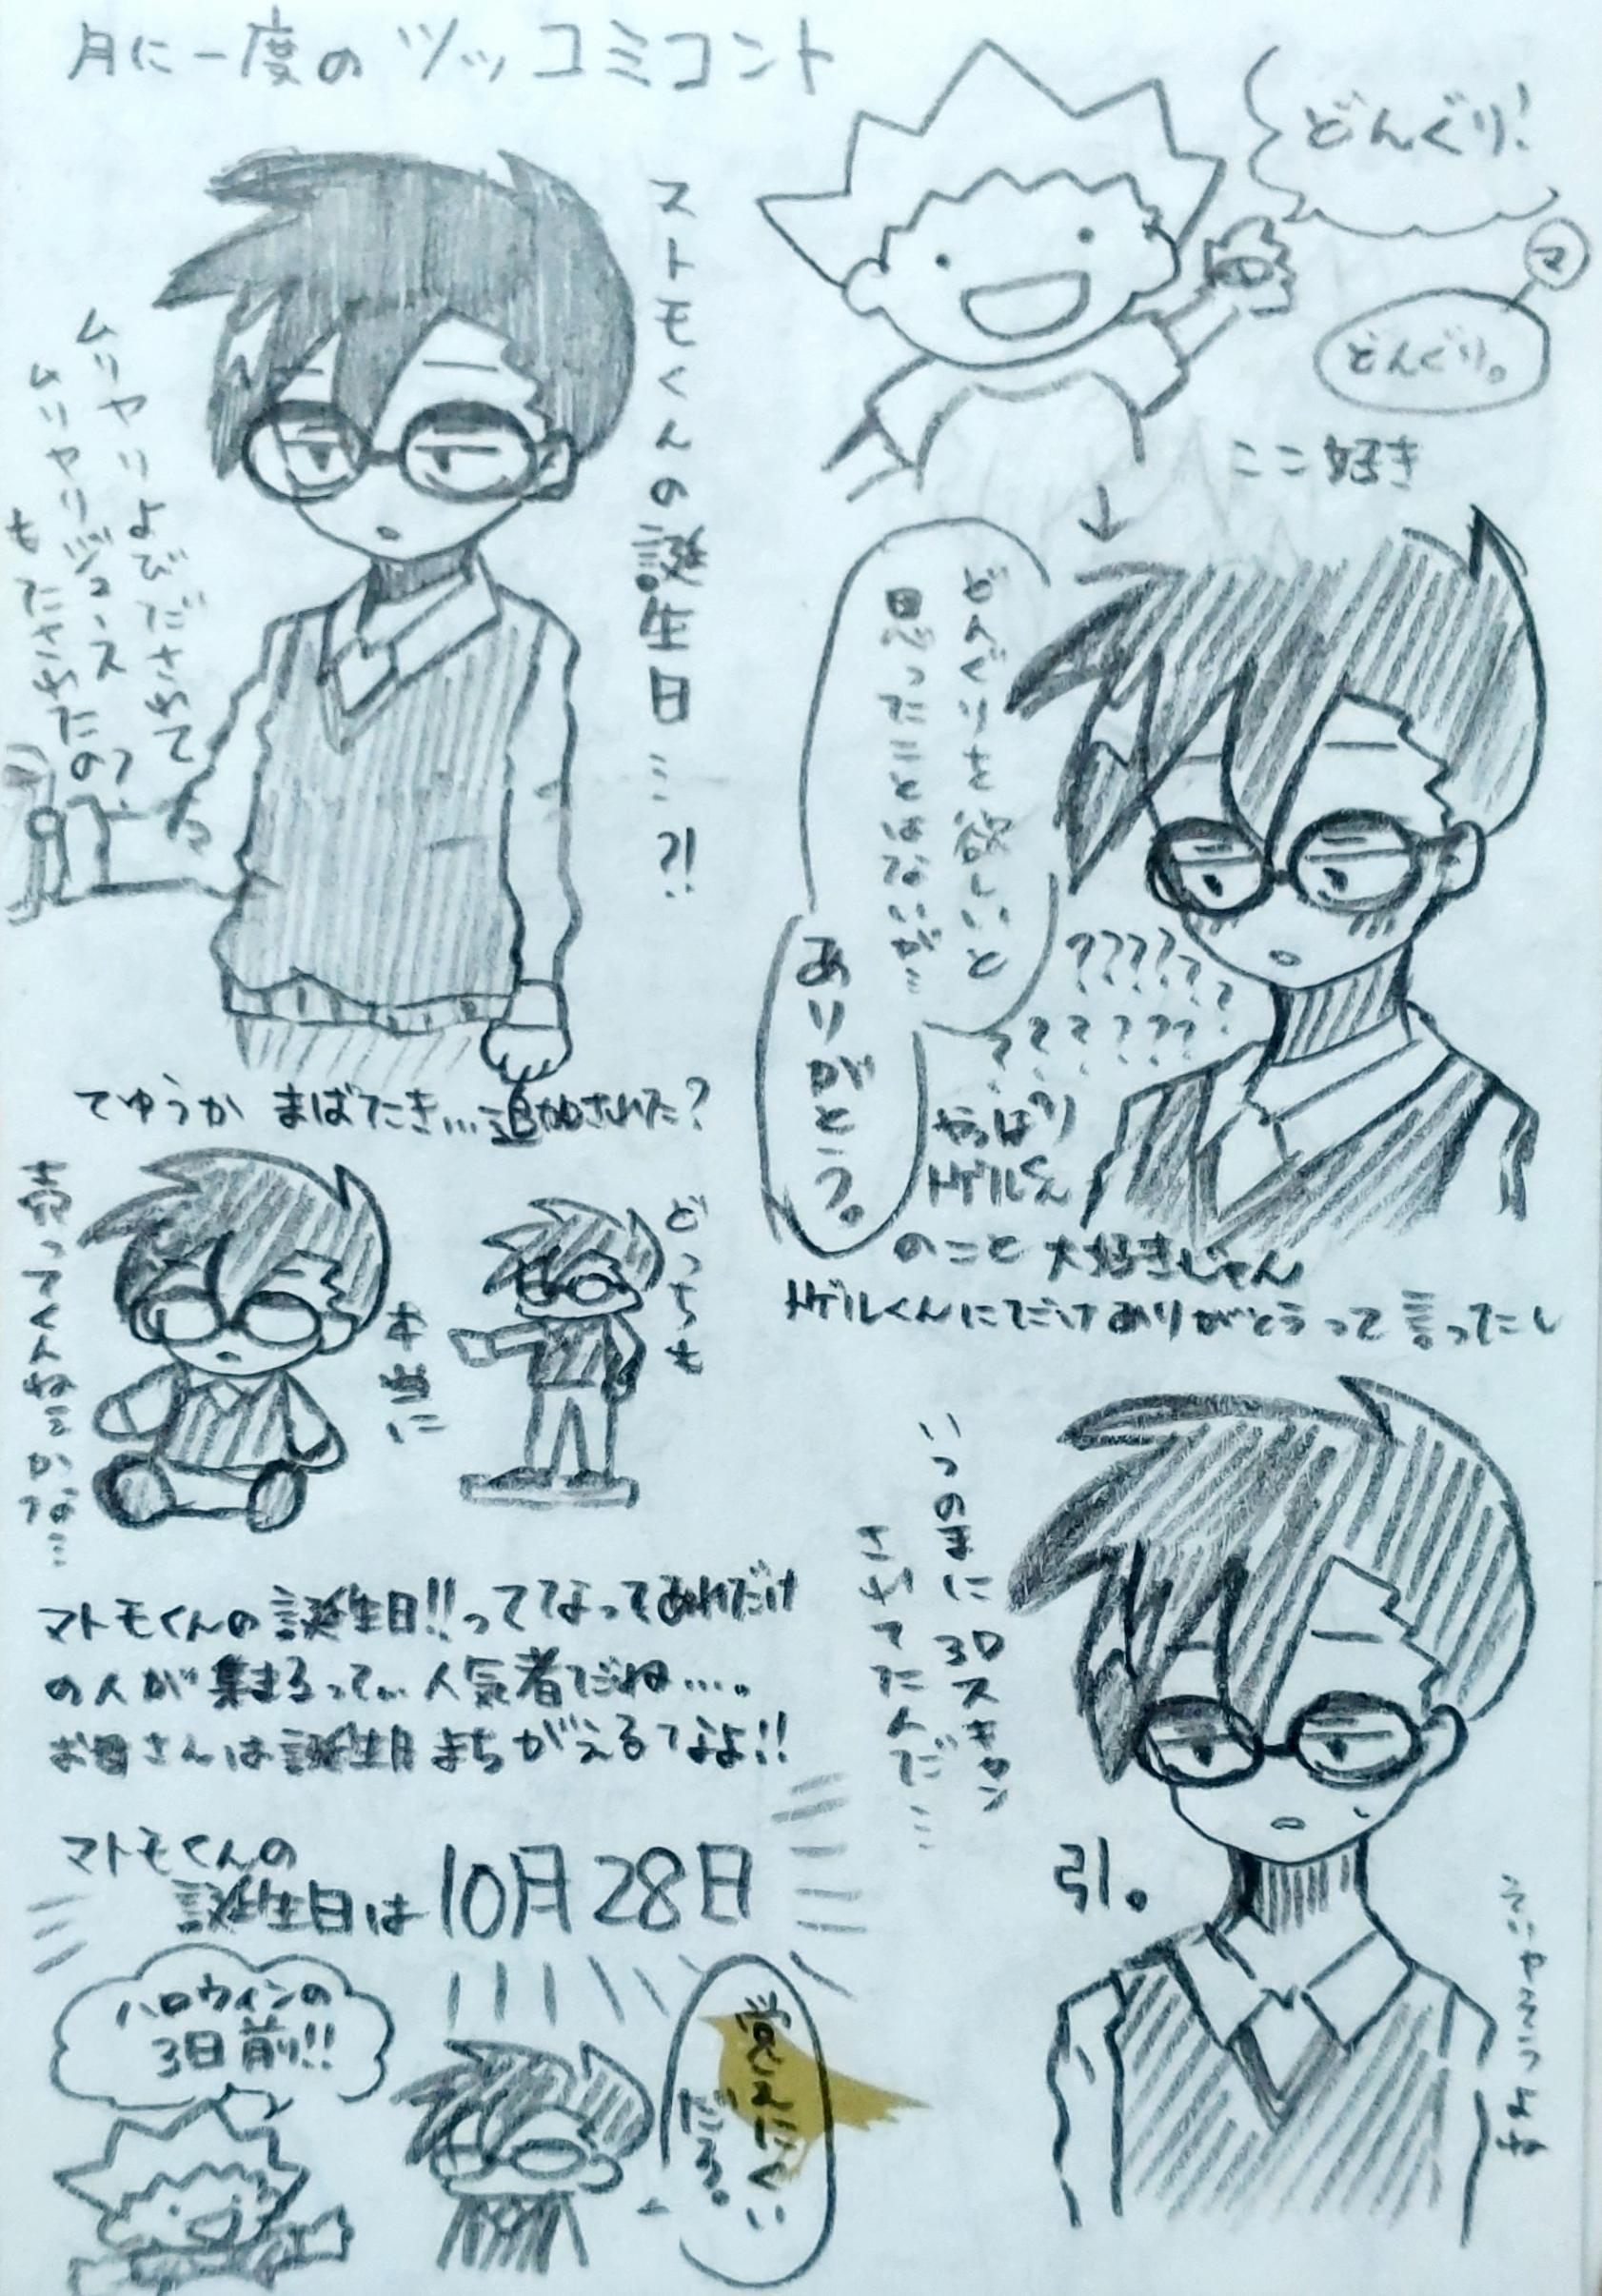 月に一度のツッコミコント
どんぐり!
マ
どんぐり。
ここ好き
↓
ストモくんの誕生日…?!
ムリヤリよびだされて
ムリヤリジュース
もたされたの?
どんぐりを欲しいと
思ったことはないが…
ありがとう。
?????
??????
やっぱり
トゲルくん
のこと大好きじゃん
トゲルくんにだけありがとうって言ってたし
てゆうか まばたき…追加された?
どっちも
本当に
売ってくんねぇかな…
いつのまに3Dスキャン
されてたんだ…
引。
マトモくんの誕生日!!ってなってあれだけ
の人が集まるって…人気者だね…。
お母さんは誕生日まちがえるなよ!!
マトモくんの
誕生日は10月28日
ハロウィンの
3日前!!
覚えにくい
だろ。